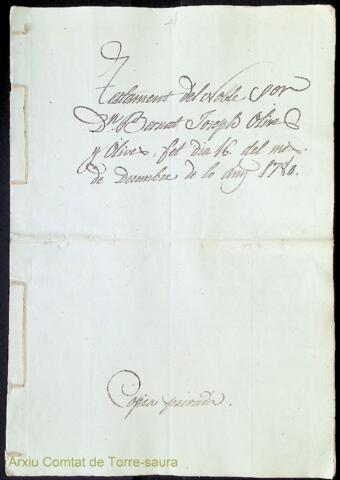 Testament del Noble Sor
Dn. Bernat Joseph Olives
y Olives, fet dia 16 del mes
de Desembre de lo any 1780.
Copia privada.
Arxiu Comtat de Torre-saura